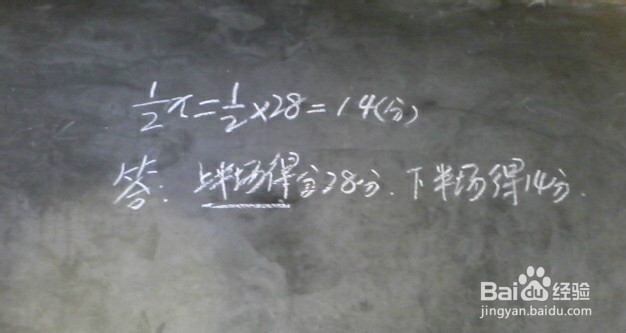 ½x=½×28=14(分)
答：上半场得分28分.下半场得14分.
Baidu经验
jingyan.baidu.com